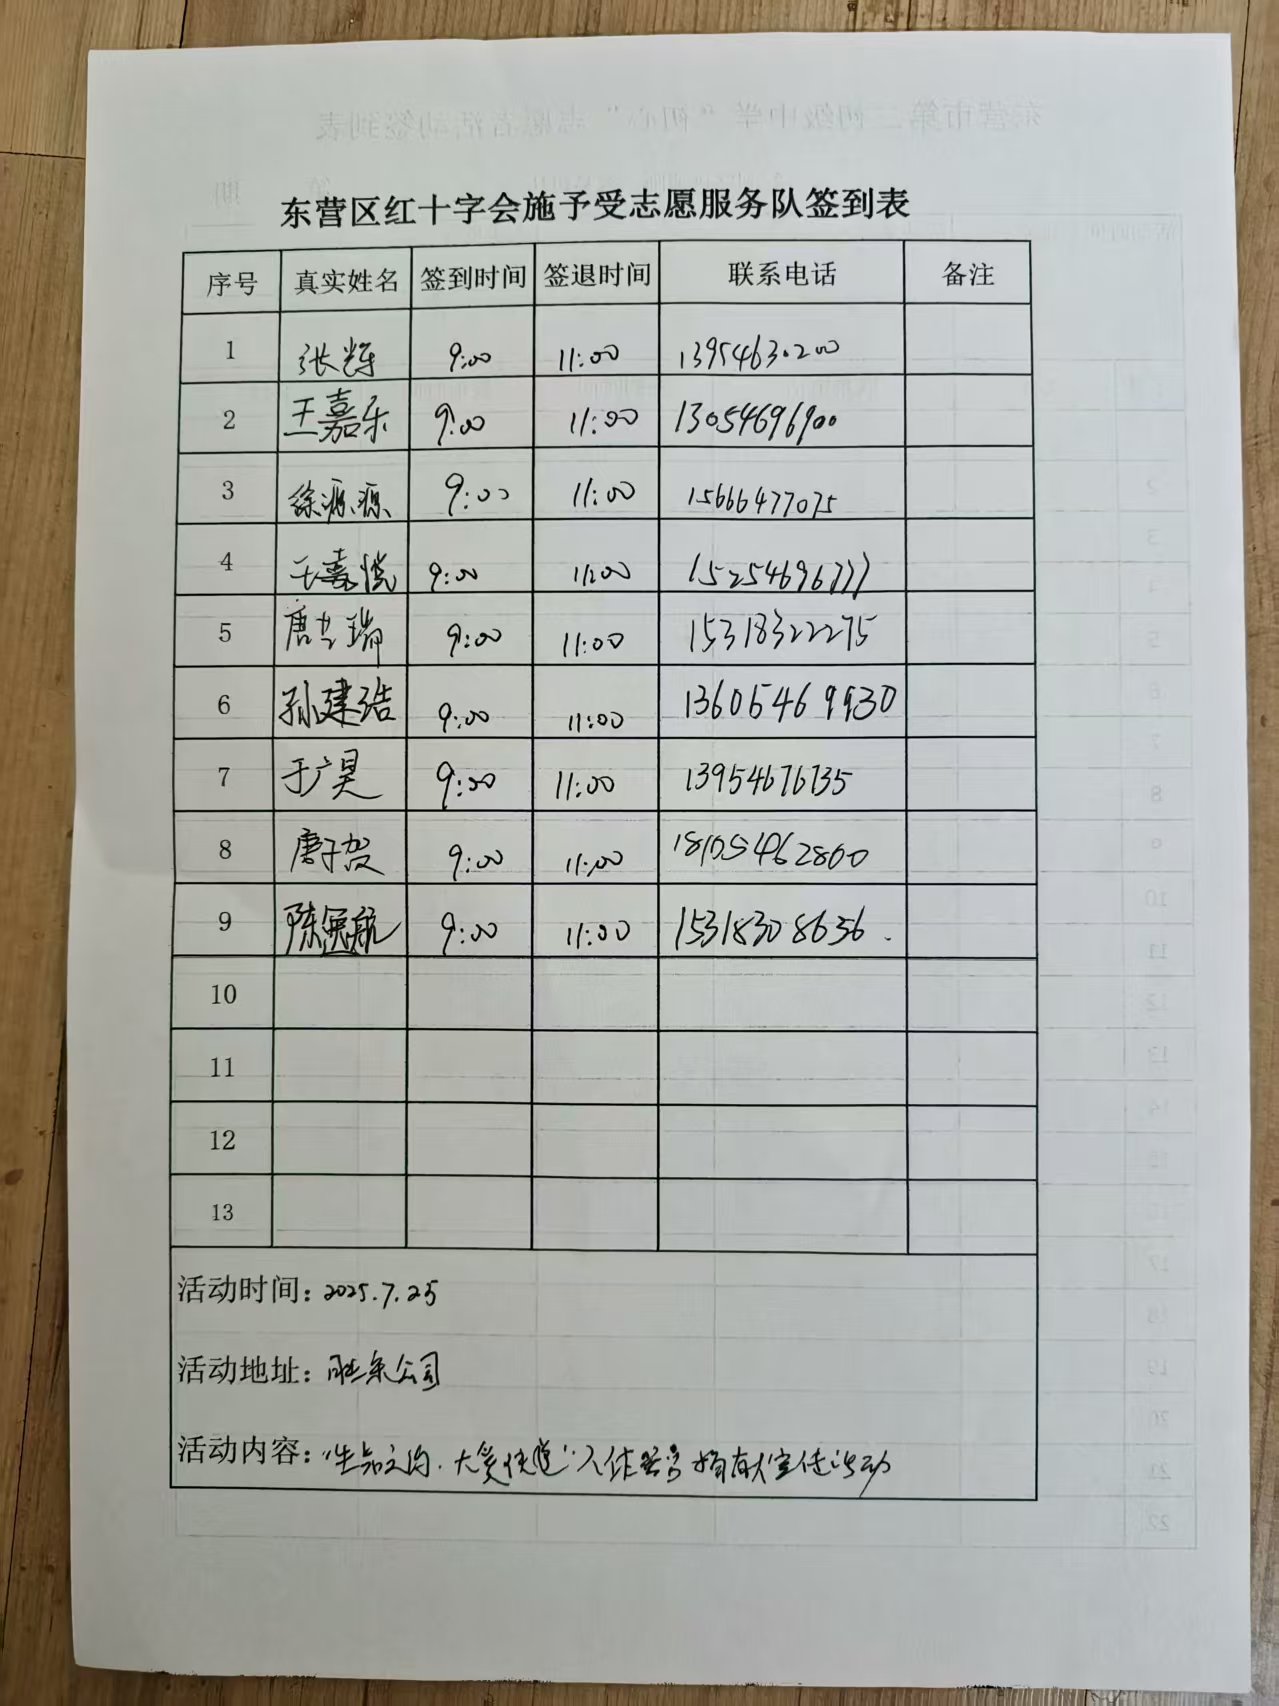 东营区红十字会施予受志愿服务队签到表
序号 真实姓名 签到时间 签退时间 联系电话 备注
1 张辉 9:00 11:00 13954630200
2 王嘉乐 9:00 11:00 13054696900
3 徐源源 9:00 11:00 15666477075
4 王嘉悦 9:00 11:00 15254696777
5 唐立瑞 9:00 11:00 15318322275
6 孙建浩 9:00 11:00 13605469930
7 于广昊 9:00 11:00 13954676735
8 唐子贺 9:00 11:00 18105462800
9 陈冠航 9:00 11:00 15318308636.
10
11
12
13
活动时间：2025.7.25
活动地址：胜东公司
活动内容："生命之约·大爱传递"人体器官捐献宣传活动